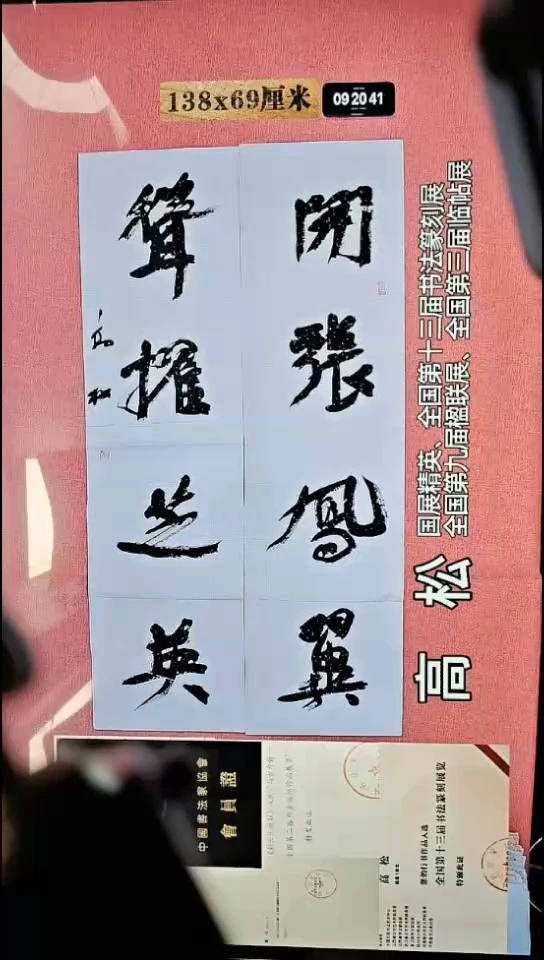 138x69厘米
09 20 41
開張鳳翼
聳擢芝英
高松
国展精英、全国第十三届书法篆刻展
全国第九届楹联展、全国第三届临帖展
高 松
中國書法家協會
會員證
特发此证
高 松
您的行书作品入选
全国第十三届书法篆刻展览
特颁此证